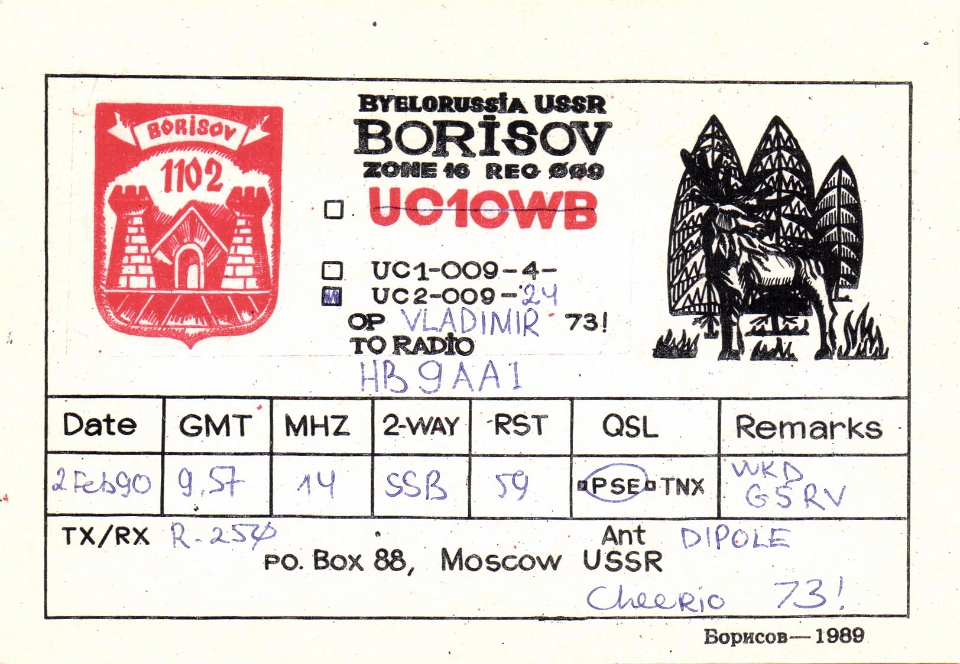 BORISOV
1102
BYELORUSSIA USSR
BORISOV
ZONE 16 REG ØØ9
UC1OWB
UC1-009-4-
UC2-009-24
OP VLADIMIR 73!
TO RADIO
HB9AAI
Date GMT MHZ 2-WAY RST QSL Remarks
2Feb90 9.57 14 SSB 59 PSE TNX WKD
G5RV
TX/RX R-25Ø Ant DIPOLE
P.O. Box 88, Moscow USSR
Cheerio 73!
Борисов—1989